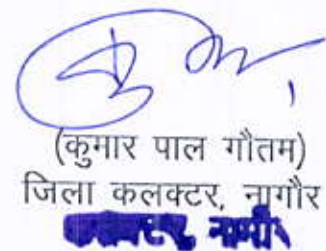 (कुमार पाल गौतम)
जिला कलक्टर, नागौर